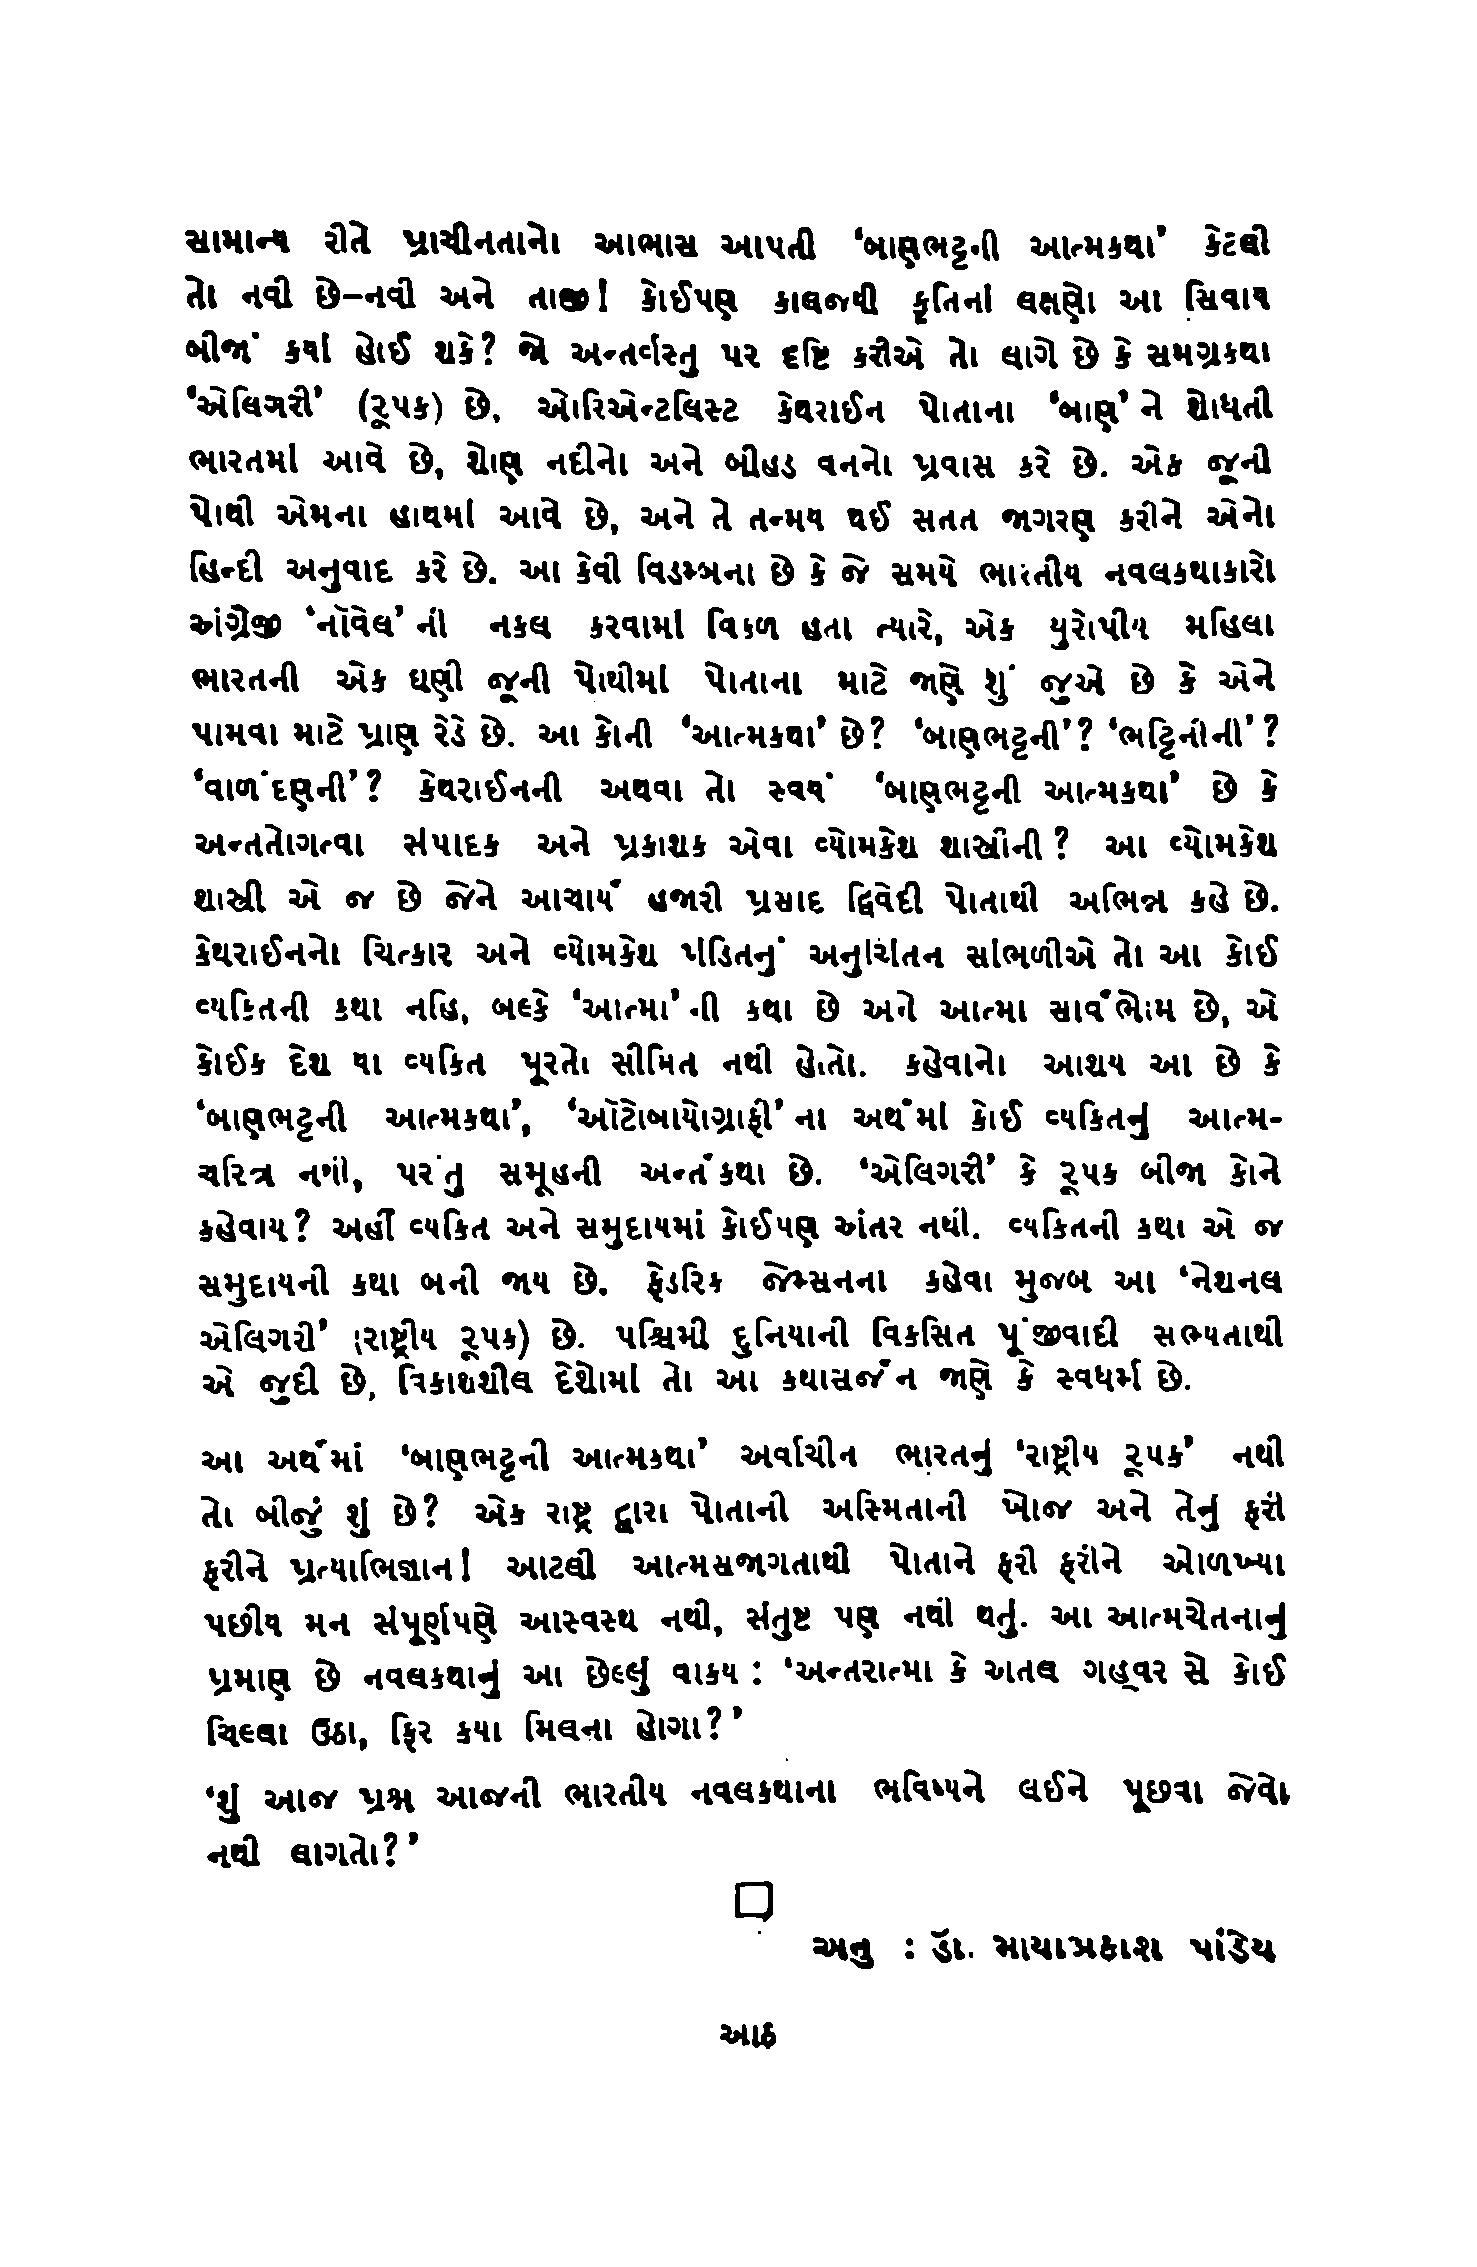 સામાન્ય રીતે પ્રાચીનતાનો આભાસ આપતી ‘બાણભટ્ટની આત્મકથા’ કેટલી
તો નવી છે–નવી અને તાજી! કોઈપણ કાલજયી કૃતિનાં લક્ષણો આ સિવાય
બીજાં કયાં હોઈ શકે? જો અન્તર્વસ્તુ પર દૃષ્ટિ કરીએ તો લાગે છે કે સમગ્રકથા
‘એલિગરી’ (રૂપક) છે. ઓરિએન્ટલિસ્ટ કેથરાઈન પોતાના ‘બાણ’ને શોધતી
ભારતમાં આવે છે, શોણ નદીનો અને બીહડ વનનો પ્રવાસ કરે છે. એક જૂની
પોથી એમના હાથમાં આવે છે, અને તે તન્મય થઈ સતત જાગરણ કરીને એનો
હિન્દી અનુવાદ કરે છે. આ કેવી વિડમ્બના છે કે જે સમયે ભારતીય નવલકથાકારો
અંગ્રેજી ‘નૉવેલ’ની નકલ કરવામાં વિકળ હતા ત્યારે, એક યુરોપીય મહિલા
ભારતની એક ઘણી જૂની પોથીમાં પોતાના માટે જાણે શું જુએ છે કે એને
પામવા માટે પ્રાણ રેડે છે. આ કોની ‘આત્મકથા’ છે? ‘બાણભટ્ટની’? ‘ભટ્ટિનીની’?
‘વાળંદણની’? કેથરાઈનની અથવા તો સ્વયં ‘બાણભટ્ટની આત્મકથા’ છે કે
અન્તતોગત્વા સંપાદક અને પ્રકાશક એવા વ્યોમકેશ શાસ્ત્રીની? આ વ્યોમકેશ
શાસ્ત્રી એ જ છે જેને આચાર્ય હજારી પ્રસાદ દ્વિવેદી પોતાથી અભિન્ન કહે છે.
કેથરાઈનનો ચિત્કાર અને વ્યોમકેશ પંડિતનું અનુચિંતન સાંભળીએ તો આ કોઈ
વ્યકિતની કથા નહિ, બલ્કે ‘આત્મા’ની કથા છે અને આત્મા સાર્વભોમ છે, એ
કોઈક દેશ યા વ્યકિત પૂરતો સીમિત નથી હોતો. કહેવાનો આશય આ છે કે
‘બાણભટ્ટની આત્મકથા’, ‘ઑટોબાયોગ્રાફી’ના અર્થમાં કોઈ વ્યકિતનું આત્મ-
ચરિત્ર નથી, પરંતુ સમૂહની અન્તર્કથા છે. ‘એલિગરી’ કે રૂપક બીજા કોને
કહેવાય? અહીં વ્યકિત અને સમુદાયમાં કોઈપણ અંતર નથી. વ્યકિતની કથા એ જ
સમુદાયની કથા બની જાય છે. ફ્રેડરિક જેમ્સનના કહેવા મુજબ આ ‘નેશનલ
એલિગરી’ (રાષ્ટ્રીય રૂપક) છે. પશ્ચિમી દુનિયાની વિકસિત પૂંજીવાદી સભ્યતાથી
એ જુદી છે, વિકાશશીલ દેશોમાં તો આ કથાસર્જન જાણે કે સ્વધર્મ છે.
આ અર્થમાં ‘બાણભટ્ટની આત્મકથા’ અર્વાચીન ભારતનું ‘રાષ્ટ્રીય રૂપક’ નથી
તો બીજું શું છે? એક રાષ્ટ્ર દ્વારા પોતાની અસ્મિતાની ખોજ અને તેનું ફરી
ફરીને પ્રત્યાભિજ્ઞાન! આટલી આત્મસજાગતાથી પોતાને ફરી ફરીને ઓળખ્યા
પછીય મન સંપૂર્ણપણે આસ્વસ્થ નથી, સંતુષ્ટ પણ નથી થતું. આ આત્મચેતનાનું
પ્રમાણ છે નવલકથાનું આ છેલ્લું વાકય : ‘અન્તરાત્મા કે અતલ ગહ્‌વર સે કોઈ
ચિલ્લા ઉઠા, ફિર કયા મિલના હોગા?’
‘શું આજ પ્રશ્ન આજની ભારતીય નવલકથાના ભવિષ્યને લઈને પૂછવા જેવો
નથી લાગતો?’
અનુ : ડૉ. માયાપ્રકાશ પાંડેય
આઠ